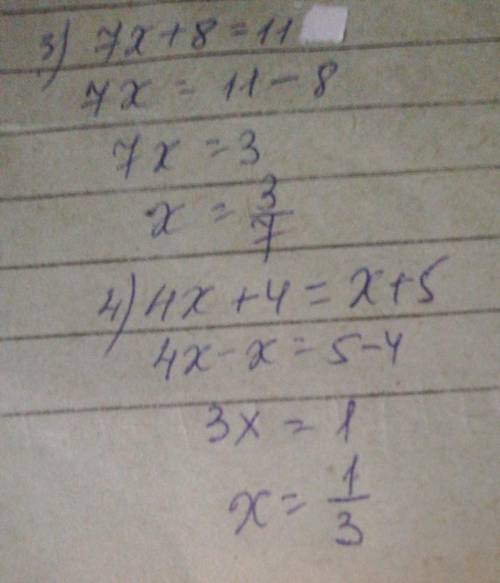 3) 7x+8=11
7x = 11-8
7x =3
x = 3/7
4) 4x+4=x+5
4x-x=5-4
3x = 1
x = 1/3